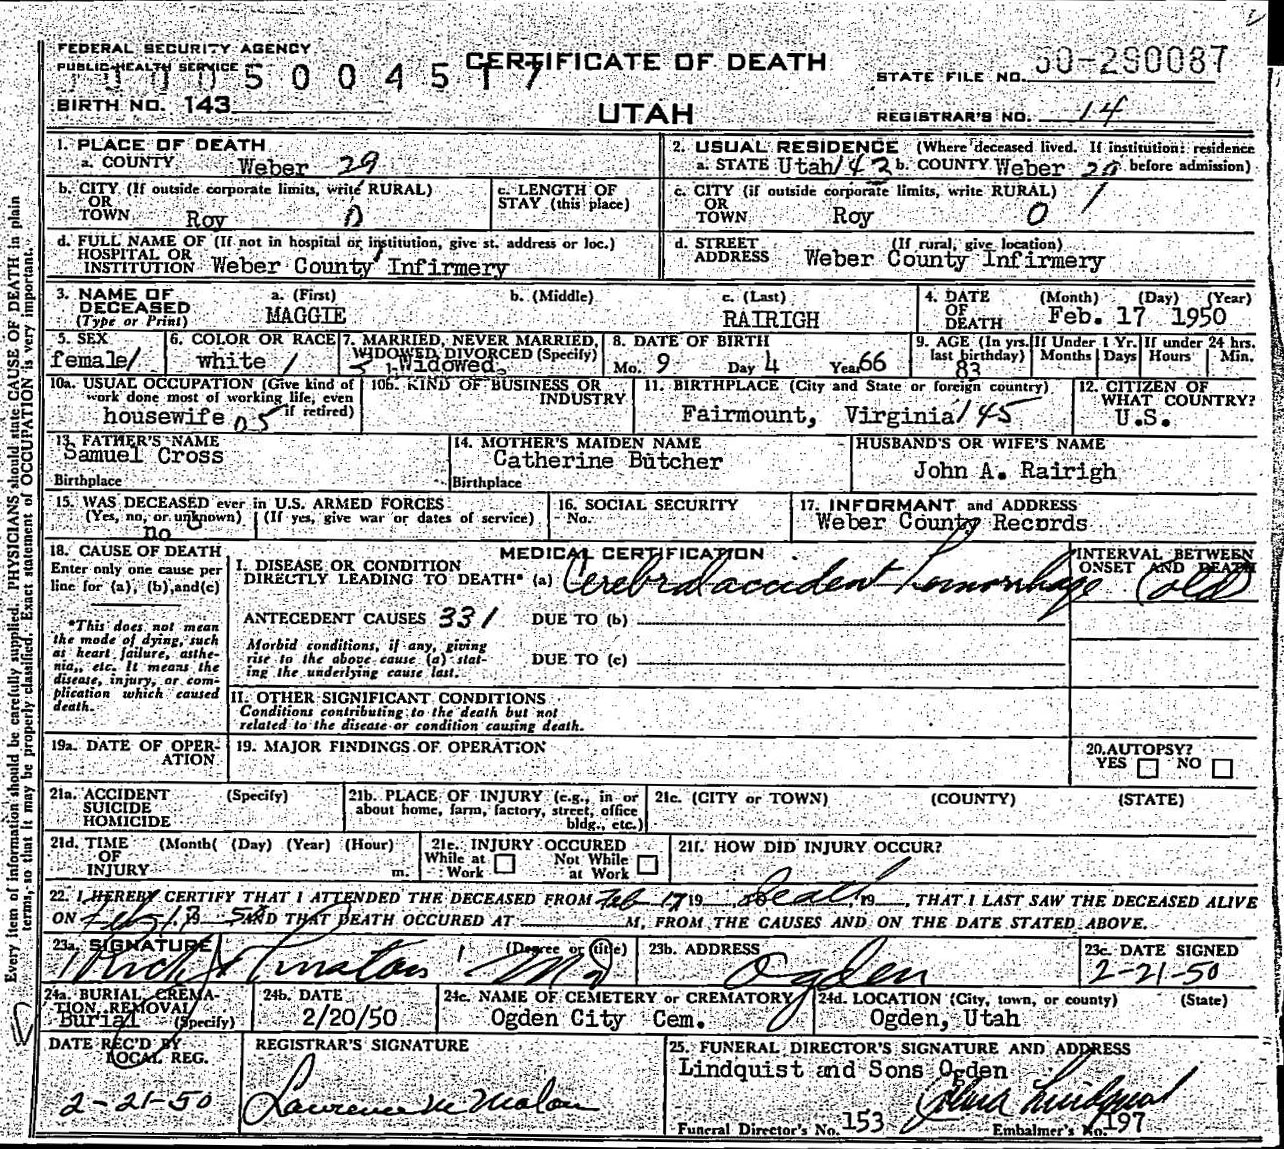 FEDERAL SECURITY AGENCY
PUBLIC HEALTH SERVICE
5 0 0 4 5 1 7
BIRTH NO. 143
CERTIFICATE OF DEATH
UTAH
STATE FILE NO. 50-290087
REGISTRAR'S NO. 14
1. PLACE OF DEATH
a. COUNTY Weber 29
2. USUAL RESIDENCE (Where deceased lived. If institution: residence
a. STATE Utah/43 b. COUNTY Weber 29 before admission)
b. CITY (If outside corporate limits, write RURAL)
OR
TOWN Roy 0
c. LENGTH OF
STAY (this place)
c. CITY (if outside corporate limits, write RURAL)
OR
TOWN Roy 0 1
d. FULL NAME OF (If not in hospital or institution, give st. address or loc.)
HOSPITAL OR
INSTITUTION Weber County Infirmery
d. STREET (If rural, give location)
ADDRESS Weber County Infirmery
3. NAME OF
DECEASED
(Type or Print)
a. (First)
MAGGIE
b. (Middle)
c. (Last)
RAIRIGH
4. DATE (Month) (Day) (Year)
OF
DEATH Feb. 17 1950
5. SEX
female/
6. COLOR OR RACE
white /
7. MARRIED, NEVER MARRIED,
WIDOWED DIVORCED (Specify)
Widowed
8. DATE OF BIRTH
Mo. 9 Day 4 Year 66
9. AGE (In yrs.
last birthday)
83
If Under 1 Yr.
Months Days
If under 24 hrs.
Hours Min.
10a. USUAL OCCUPATION (Give kind of
work done most of working life, even
if retired)
housewife 05
10b. KIND OF BUSINESS OR
INDUSTRY
11. BIRTHPLACE (City and State or foreign country)
Fairmount, Virginia/45
12. CITIZEN OF
WHAT COUNTRY?
U.S.
13. FATHER'S NAME
Samuel Cross
Birthplace
14. MOTHER'S MAIDEN NAME
Catherine Butcher
Birthplace
HUSBAND'S OR WIFE'S NAME
John A. Rairigh
15. WAS DECEASED ever in U.S. ARMED FORCES
(Yes, no, or unknown) (If yes, give war or dates of service)
no
16. SOCIAL SECURITY
No.
17. INFORMANT and ADDRESS
Weber County Records
18. CAUSE OF DEATH
Enter only one cause per
line for (a), (b), and (c)
*This does not mean
the mode of dying, such
as heart failure, asthe-
nia, etc. It means the
disease, injury, or com-
plication which caused
death.
MEDICAL CERTIFICATION
I. DISEASE OR CONDITION
DIRECTLY LEADING TO DEATH* (a) Cerebral accident hemorrhage
INTERVAL BETWEEN
ONSET AND DEATH
(old)
ANTECEDENT CAUSES 331 DUE TO (b)
Morbid conditions, if any, giving
rise to the above cause (a) stat-
ing the underlying cause last.
DUE TO (c)
II. OTHER SIGNIFICANT CONDITIONS
Conditions contributing to the death but not
related to the disease or condition causing death.
19a. DATE OF OPER-
ATION
19. MAJOR FINDINGS OF OPERATION
20. AUTOPSY?
YES NO
21a. ACCIDENT (Specify)
SUICIDE
HOMICIDE
21b. PLACE OF INJURY (e.g., in or
about home, farm, factory, street, office
bldg., etc.)
21c. (CITY or TOWN) (COUNTY) (STATE)
21d. TIME (Month( (Day) (Year) (Hour)
OF
INJURY m.
21e. INJURY OCCURED
While at Not While
Work at Work
21f. HOW DID INJURY OCCUR?
22. I HEREBY CERTIFY THAT I ATTENDED THE DECEASED FROM Feb 17 19__, to Death, 19__, THAT I LAST SAW THE DECEASED ALIVE
ON Feb 17 19 50 AND THAT DEATH OCCURED AT ______ M, FROM THE CAUSES AND ON THE DATE STATED ABOVE.
23a. SIGNATURE (Degree or title)
MD
23b. ADDRESS
Ogden
23c. DATE SIGNED
2-21-50
24a. BURIAL, CREMA-
TION, REMOVAL
(Specify)
Burial
24b. DATE
2/20/50
24c. NAME OF CEMETERY or CREMATORY
Ogden City Cem.
24d. LOCATION (City, town, or county) (State)
Ogden, Utah
DATE REC'D BY
LOCAL REG.
2-21-50
REGISTRAR'S SIGNATURE
Lawrence M Malan
25. FUNERAL DIRECTOR'S SIGNATURE AND ADDRESS
Lindquist and Sons Ogden
John Lindquist
Funeral Director's No. 153 Embalmer's No. 197
Every item of information should be carefully supplied. PHYSICIANS should state CAUSE OF DEATH in plain
terms, so that it may be properly classified. Exact statement of OCCUPATION is very important.